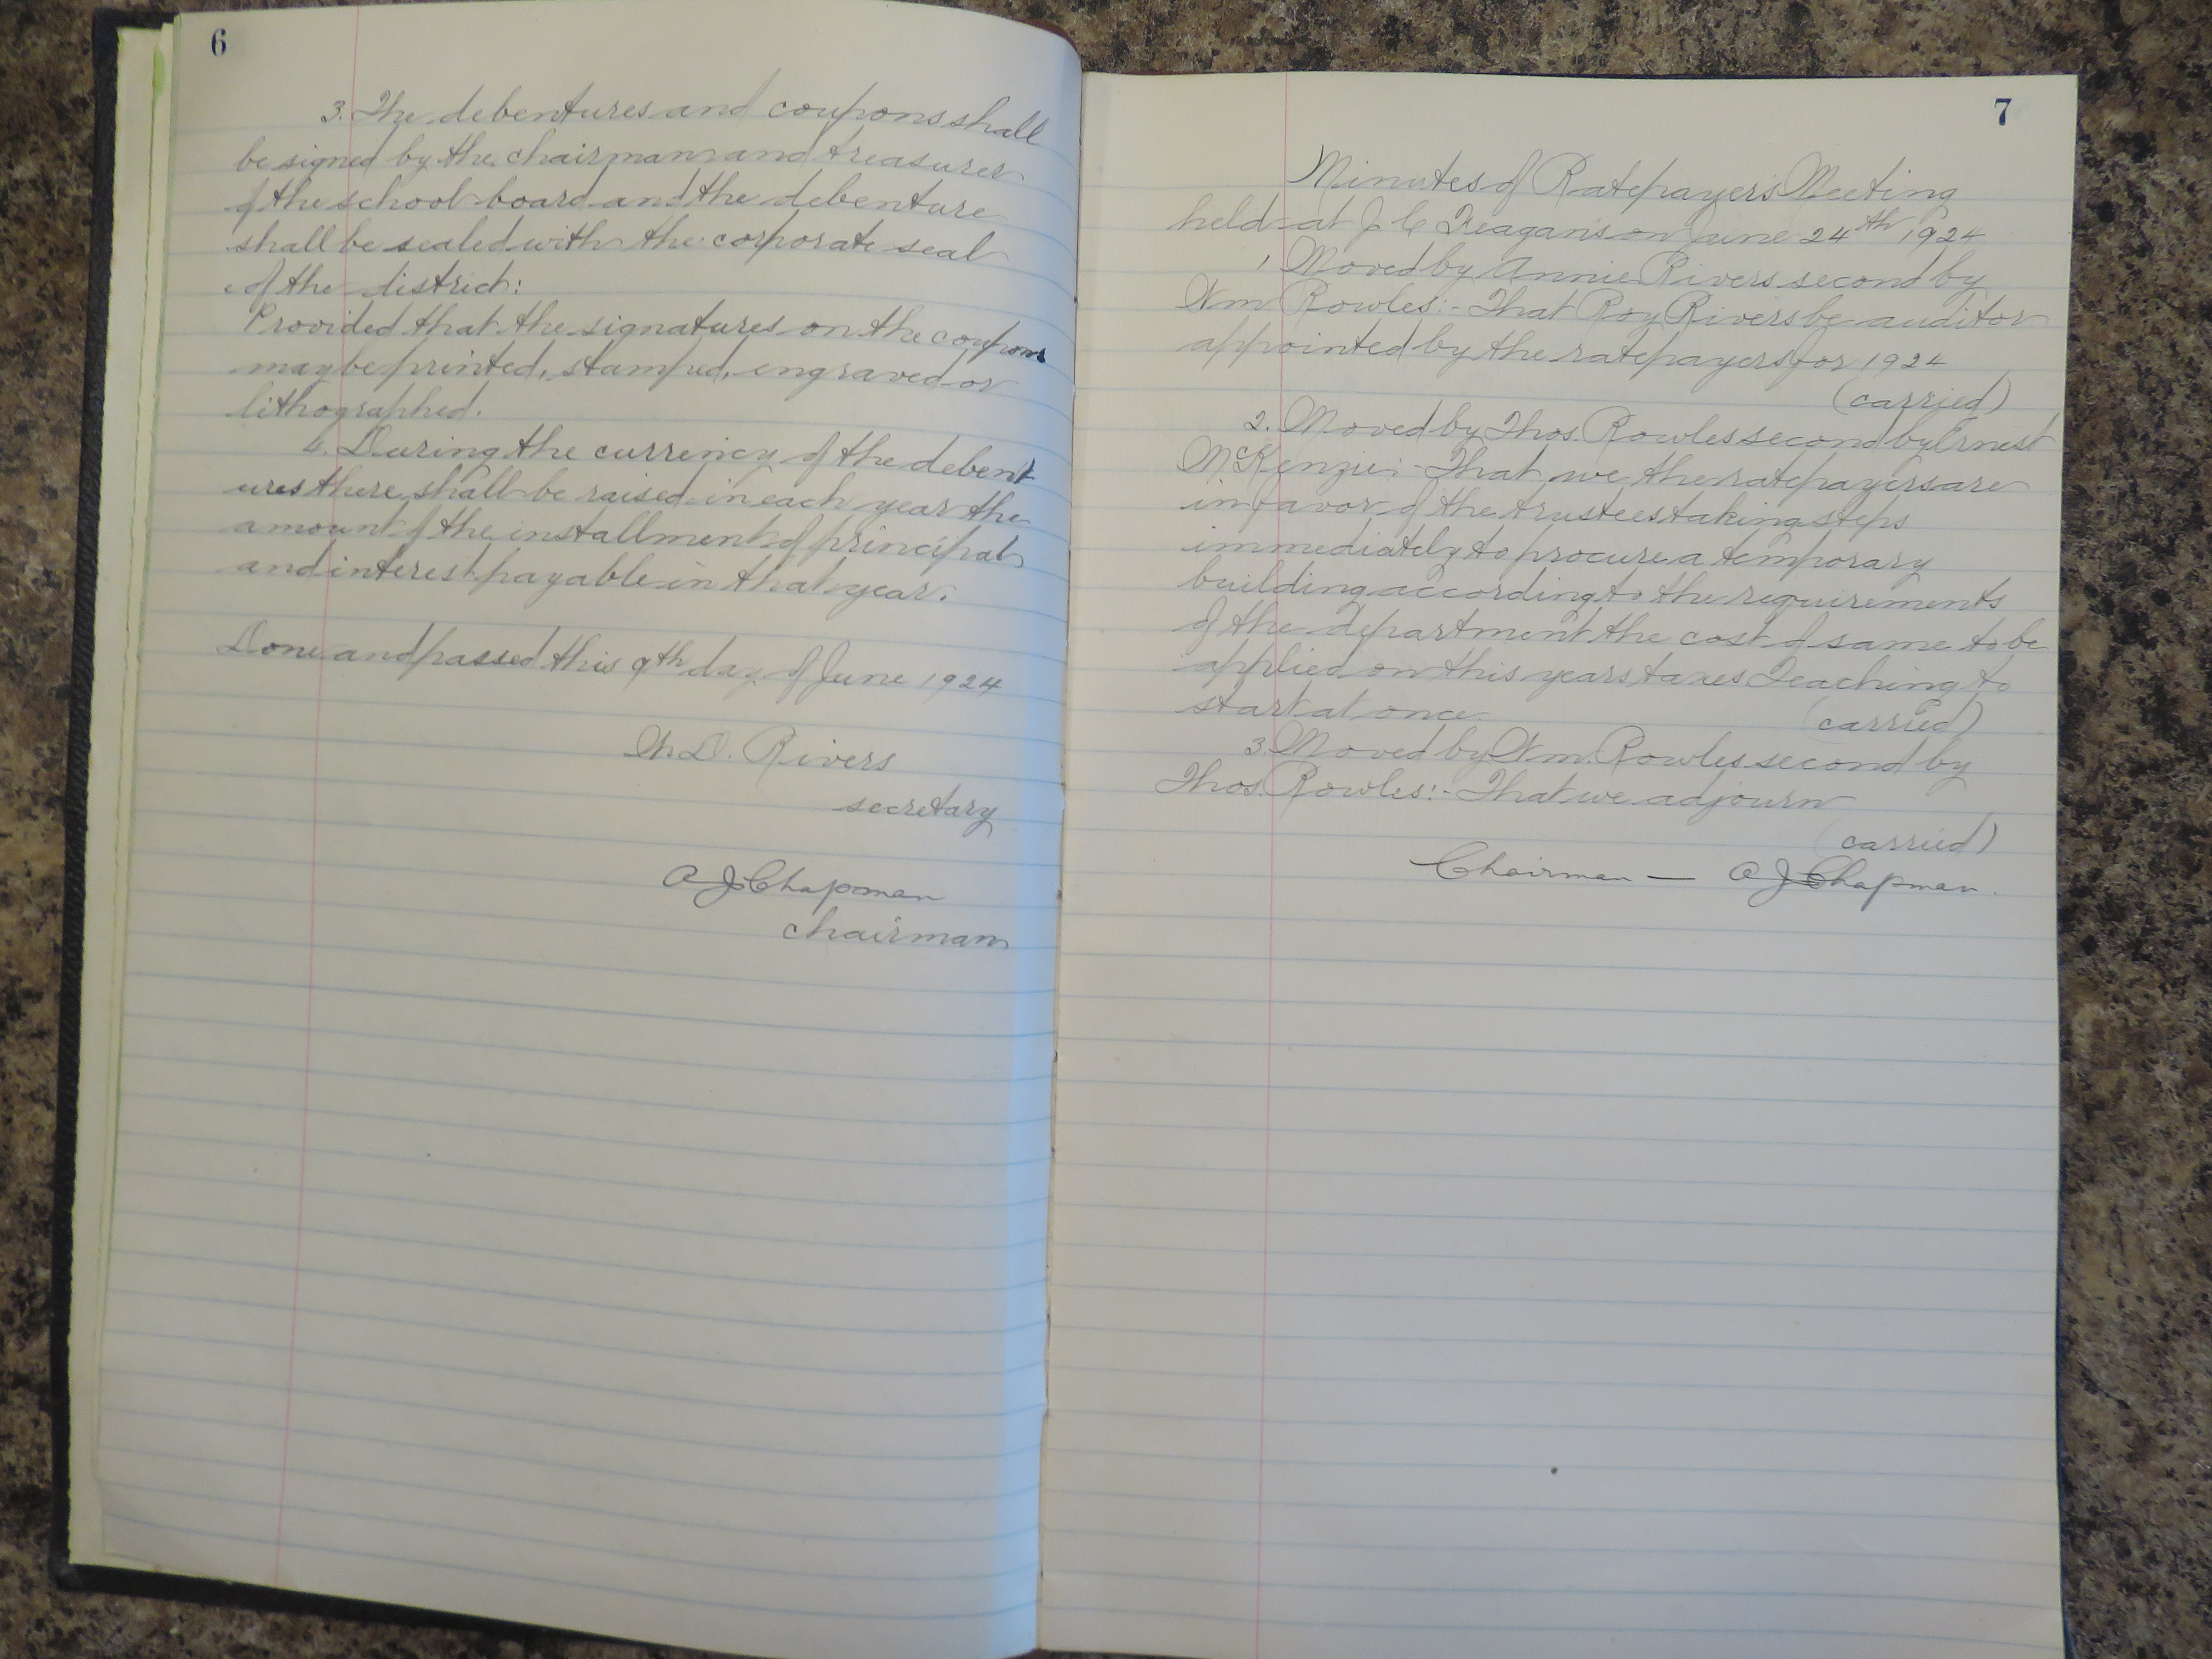 6
3. The debentures and coupons shall
be signed by the chairman and treasurer
of the school board and the debenture
shall be sealed with the corporate seal
of the district:
Provided that the signatures on the coupons
may be printed, stamped, engraved or
lithographed.
4. During the currency of the debent
ures there shall be raised in each year the
amount of the installment of principal
and interest payable in that year.
Done and passed this 9th day of June 1924
D. Rivers
secretary
A J Chapman
chairman
7
Minutes of Ratepayer's Meeting
held at J. C. Teagan's on June 24th 1924
1 Moved by Annie Rivers second by
Wm Rowles:- That Roy Rivers be auditor
appointed by the ratepayers for 1924
(carried)
2. Moved by Thos. Rowles second by Ernest
McKenzie:- That we the ratepayers are
in favor of the trustees taking steps
immediately to procure a temporary
building according to the requirements
of the department the cost of same to be
applied on this years taxes Teaching to
start at once.
(carried)
3. Moved by Wm. Rowles second by
Thos. Rowles:- That we adjourn
(carried)
Chairman — A J Chapman.